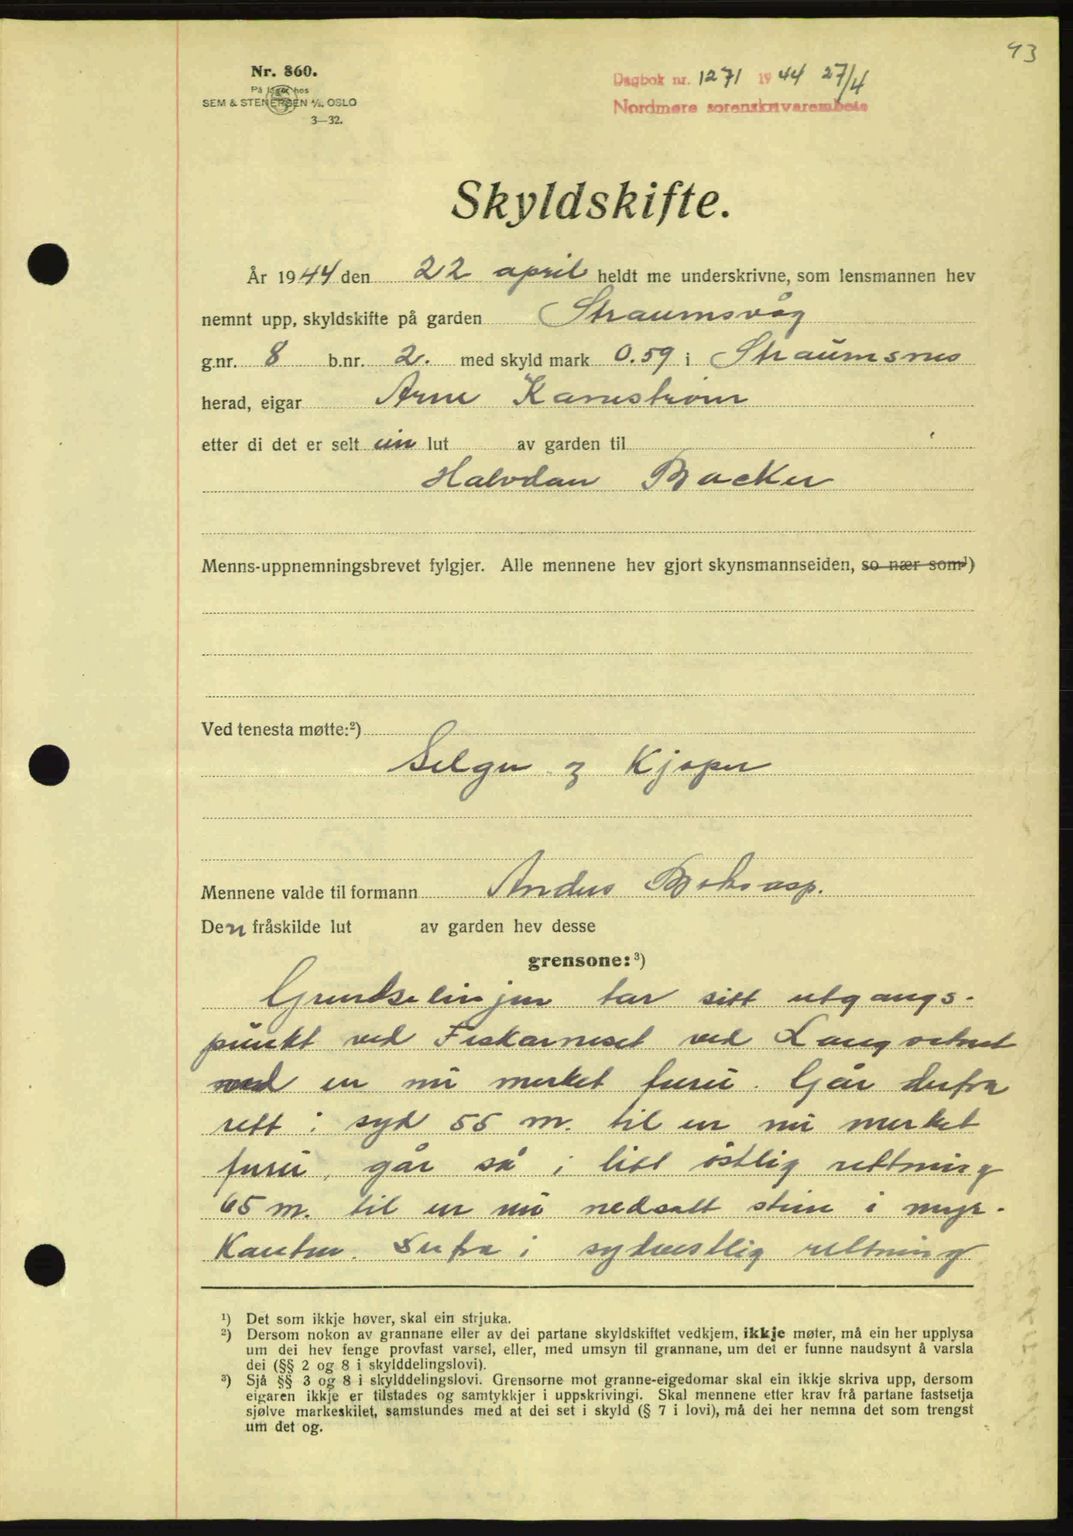 93
Nr. 860.
På lager hos
SEM & STENERSEN A/S, OSLO
3—32.
Dagbok nr. 1271 1944 27/4
Nordmøre sorenskrivarembete
Skyldskifte.
År 1944 den 22 april heldt me underskrivne, som lensmannen hev
nemnt upp, skyldskifte på garden Straumsvåg
g.nr. 8 b.nr. 2. med skyld mark 0.59 i Straumsnes
herad, eigar Arne Kanestrøm
etter di det er selt ein lut av garden til
Halvdan Backer
Menns-uppnemningsbrevet fylgjer. Alle mennene hev gjort skynsmannseiden, so nær som¹)
Ved tenesta møtte:²)
Selger og Kjøper
Mennene valde til formann Anders
Den fråskilde lut av garden hev desse
grensone:³)
Grendselinjen tar sitt utgangs-
punkt ved Fiskarneset ved Langvatnet
ved en nu merket furu. Går derfra
rett i syd 55 m. til en nu merket
furu, går så i litt östlig rettning
65 m. til en nu nedsatt stein i myr-
kanten. Derfra i sydvestlig rettning
¹) Det som ikkje høver, skal ein strjuka.
²) Dersom nokon av grannane eller av dei partane skyldskiftet vedkjem, ikkje møter, må ein her upplysa
um dei hev fenge provfast varsel, eller, med umsyn til grannane, um det er funne naudsynt å varsla
dei (§§ 2 og 8 i skylddelingslovi).
³) Sjå §§ 3 og 8 i skylddelingslovi. Grensorne mot granne-eigedomar skal ein ikkje skriva upp, dersom
eigaren ikkje er tilstades og samtykkjer i uppskrivingi. Skal mennene etter krav frå partane fastsetja
sjølve markeskilet, samstundes med at dei set i skyld (§ 7 i lovi), må dei her nemna det som trengst
um det og.